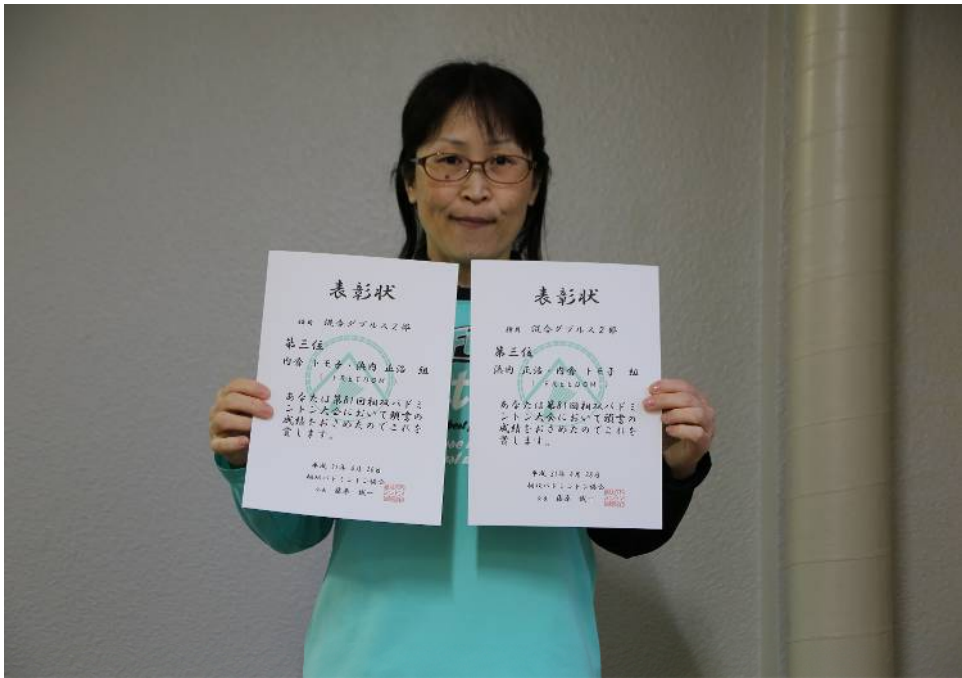 表彰状
種目 混合ダブルス2部
第三位
トモ子・浜内 正治 組
FREEDOM
あなたは第81回相双バドミ
ントン大会において頭書の
成績をおさめたのでこれを
賞します。
平成
相双バドミントン協会
会長 誠一
表彰状
種目 混合ダブルス2部
第三位
浜内 正治・ トモ子 組
FREEDOM
あなたは第81回相双バドミ
ントン大会において頭書の
成績をおさめたのでこれを
賞します。
平成
相双バドミントン協会
会長 誠一